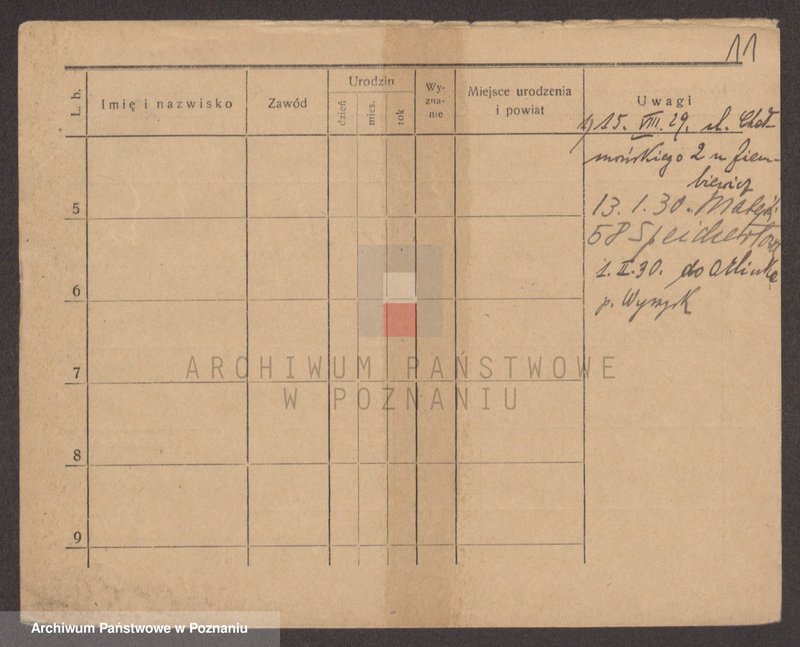 11
L. b.
Imię i nazwisko
Zawód
Urodzin
dzień
mies.
rok
Wy-
zna-
nie
Miejsce urodzenia
i powiat
Uwagi
1) 15. VIII. 29. ul. Cheł-
mońskiego 2 u Ziem-
biewicz
13. 1. 30. Matejki
58
1. II. 30. do
p. Wyrzysk
5
6
7
8
9
ARCHIWUM PAŃSTWOWE
W POZNANIU
Archiwum Państwowe w Poznaniu